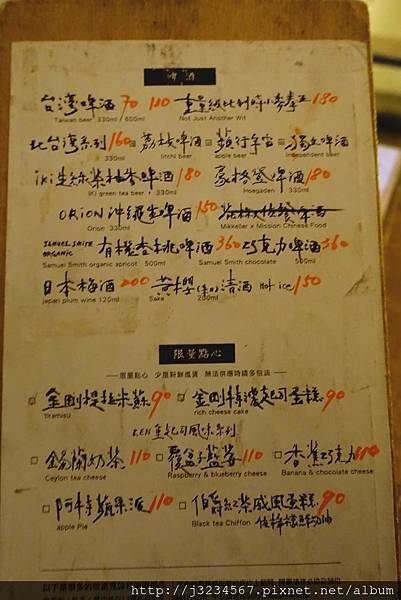 啤酒
台灣啤酒 70 110 重量級比利時小麥 180
Taiwan beer 330ml / 600ml Not Just Another Wit
北台灣系列 160 荔枝啤酒 蘋果 獨立啤酒
330ml litchi beer apple beer independent beer
iKi 生絲 啤酒 180 豪格登啤酒 180
IKI green tea beer 330ml Hoegaarden 330ml
ORiON 沖繩生啤酒 150
Orion 330ml Mikkeller x Mission Chinese Food
SAMUEL SMITH ORGANIC 有機杏桃啤酒 360 巧克力啤酒 360
Samuel Smith organic apricot 500ml Samuel Smith chocolate 500ml
日本梅酒 200 黃櫻 清酒 Hot ice 150
japan plum wine 120ml Sake 200ml
限量點心
限量點心 少量新鮮減貨 無法供應時請多包涵
金剛提拉米蘇 90 金剛特濃起司蛋糕 90
tiramisu rich cheese cake
KEN 重起司風味系列
錫蘭奶茶 110 覆盆子藍莓 110 香蕉巧克力 110
Ceylon tea cheese Raspberry & blueberry cheese Banana & chocolate cheese
阿 蘋果派 110 伯爵紅茶戚風蛋糕 90
apple Pie Black tea Chiffon
http://j3234567.pixnet.net/album